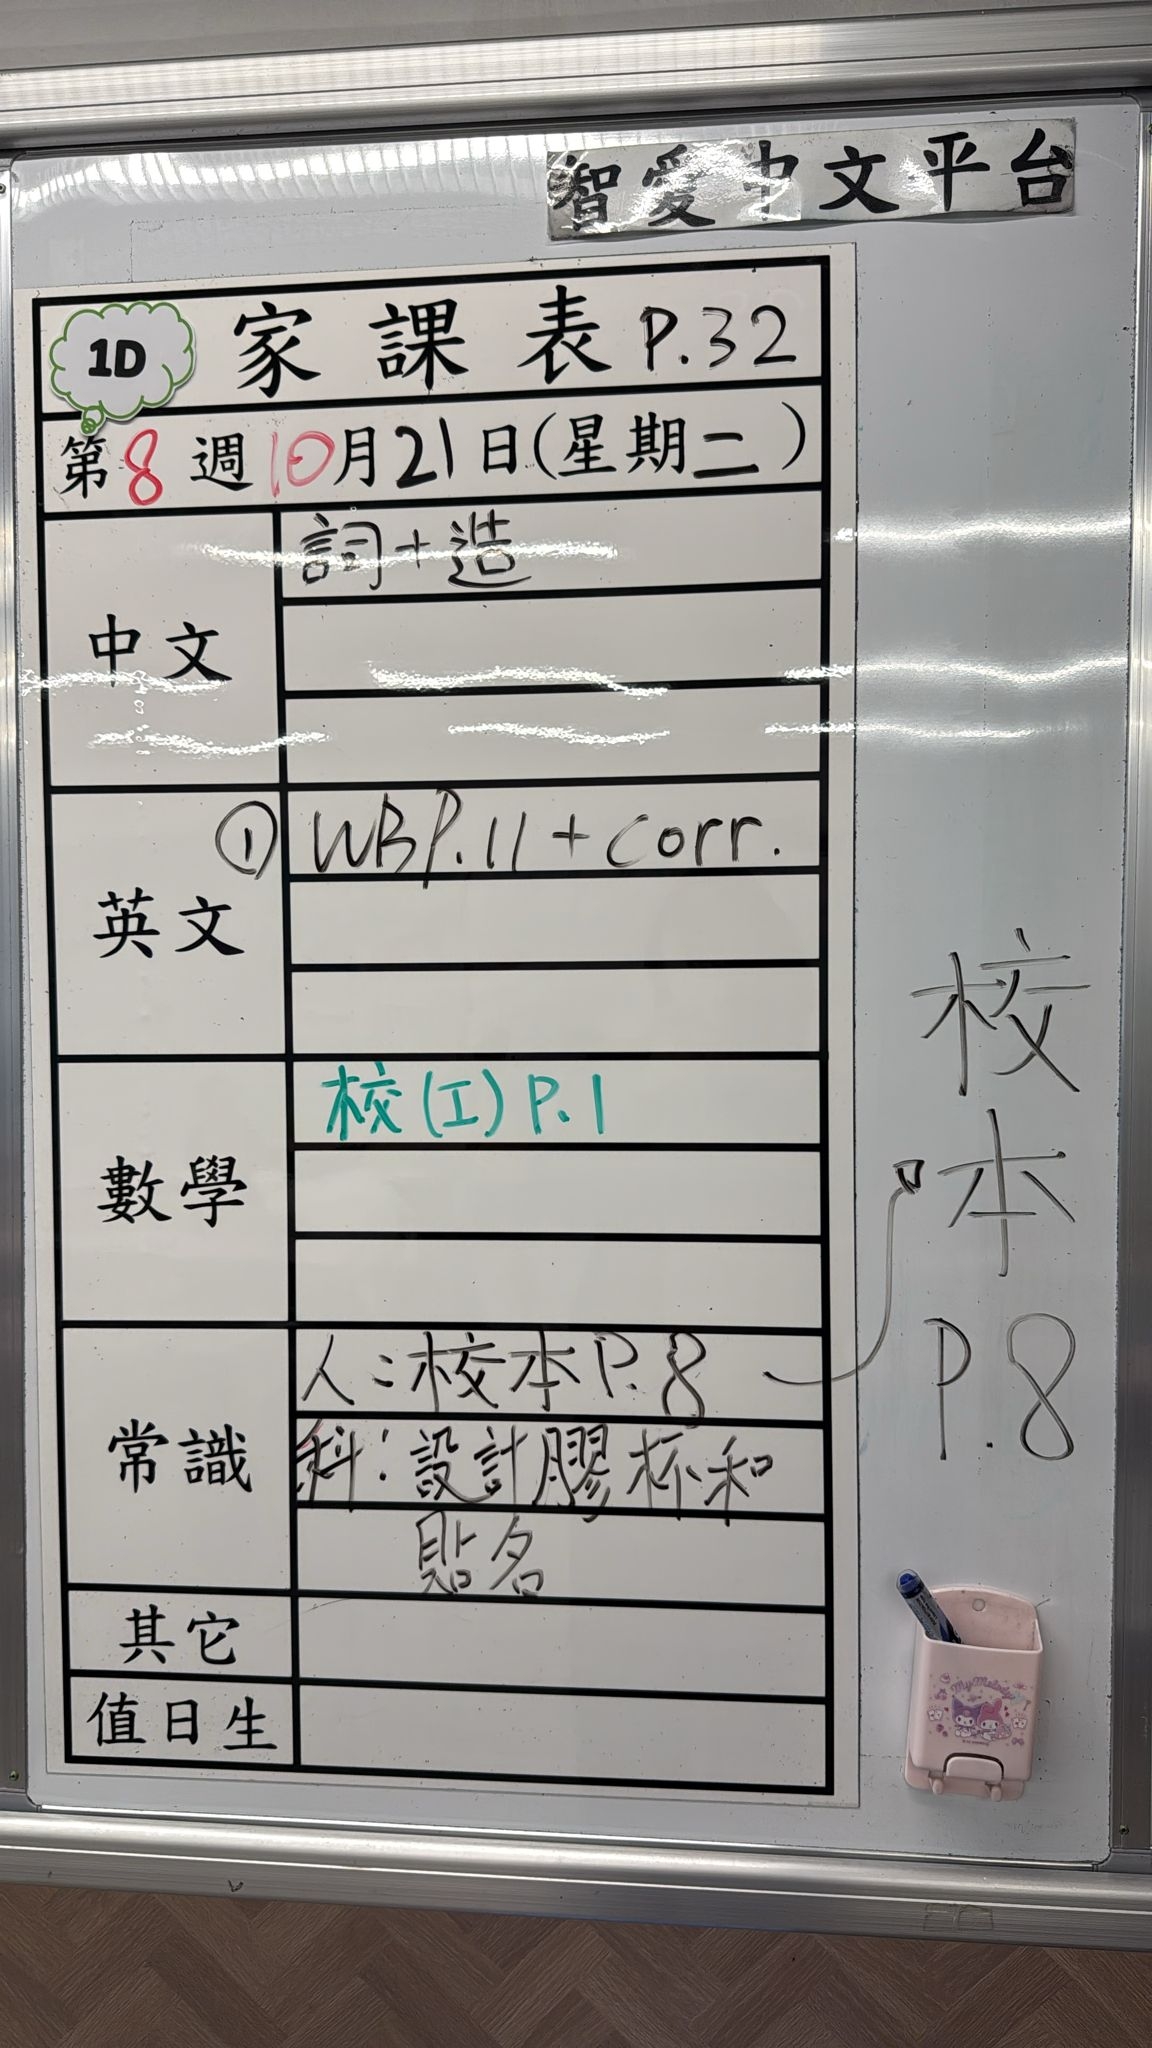 智愛中文平台
1D 家課表 P.32
第8週10月21日(星期二)
中文
詞+造
英文
① WB P.11 + corr.
數學
校(工) P.1
常識
人:校本P.8
科:設計膠杯和
貼名
其它
值日生
校本
P.8
My Melody